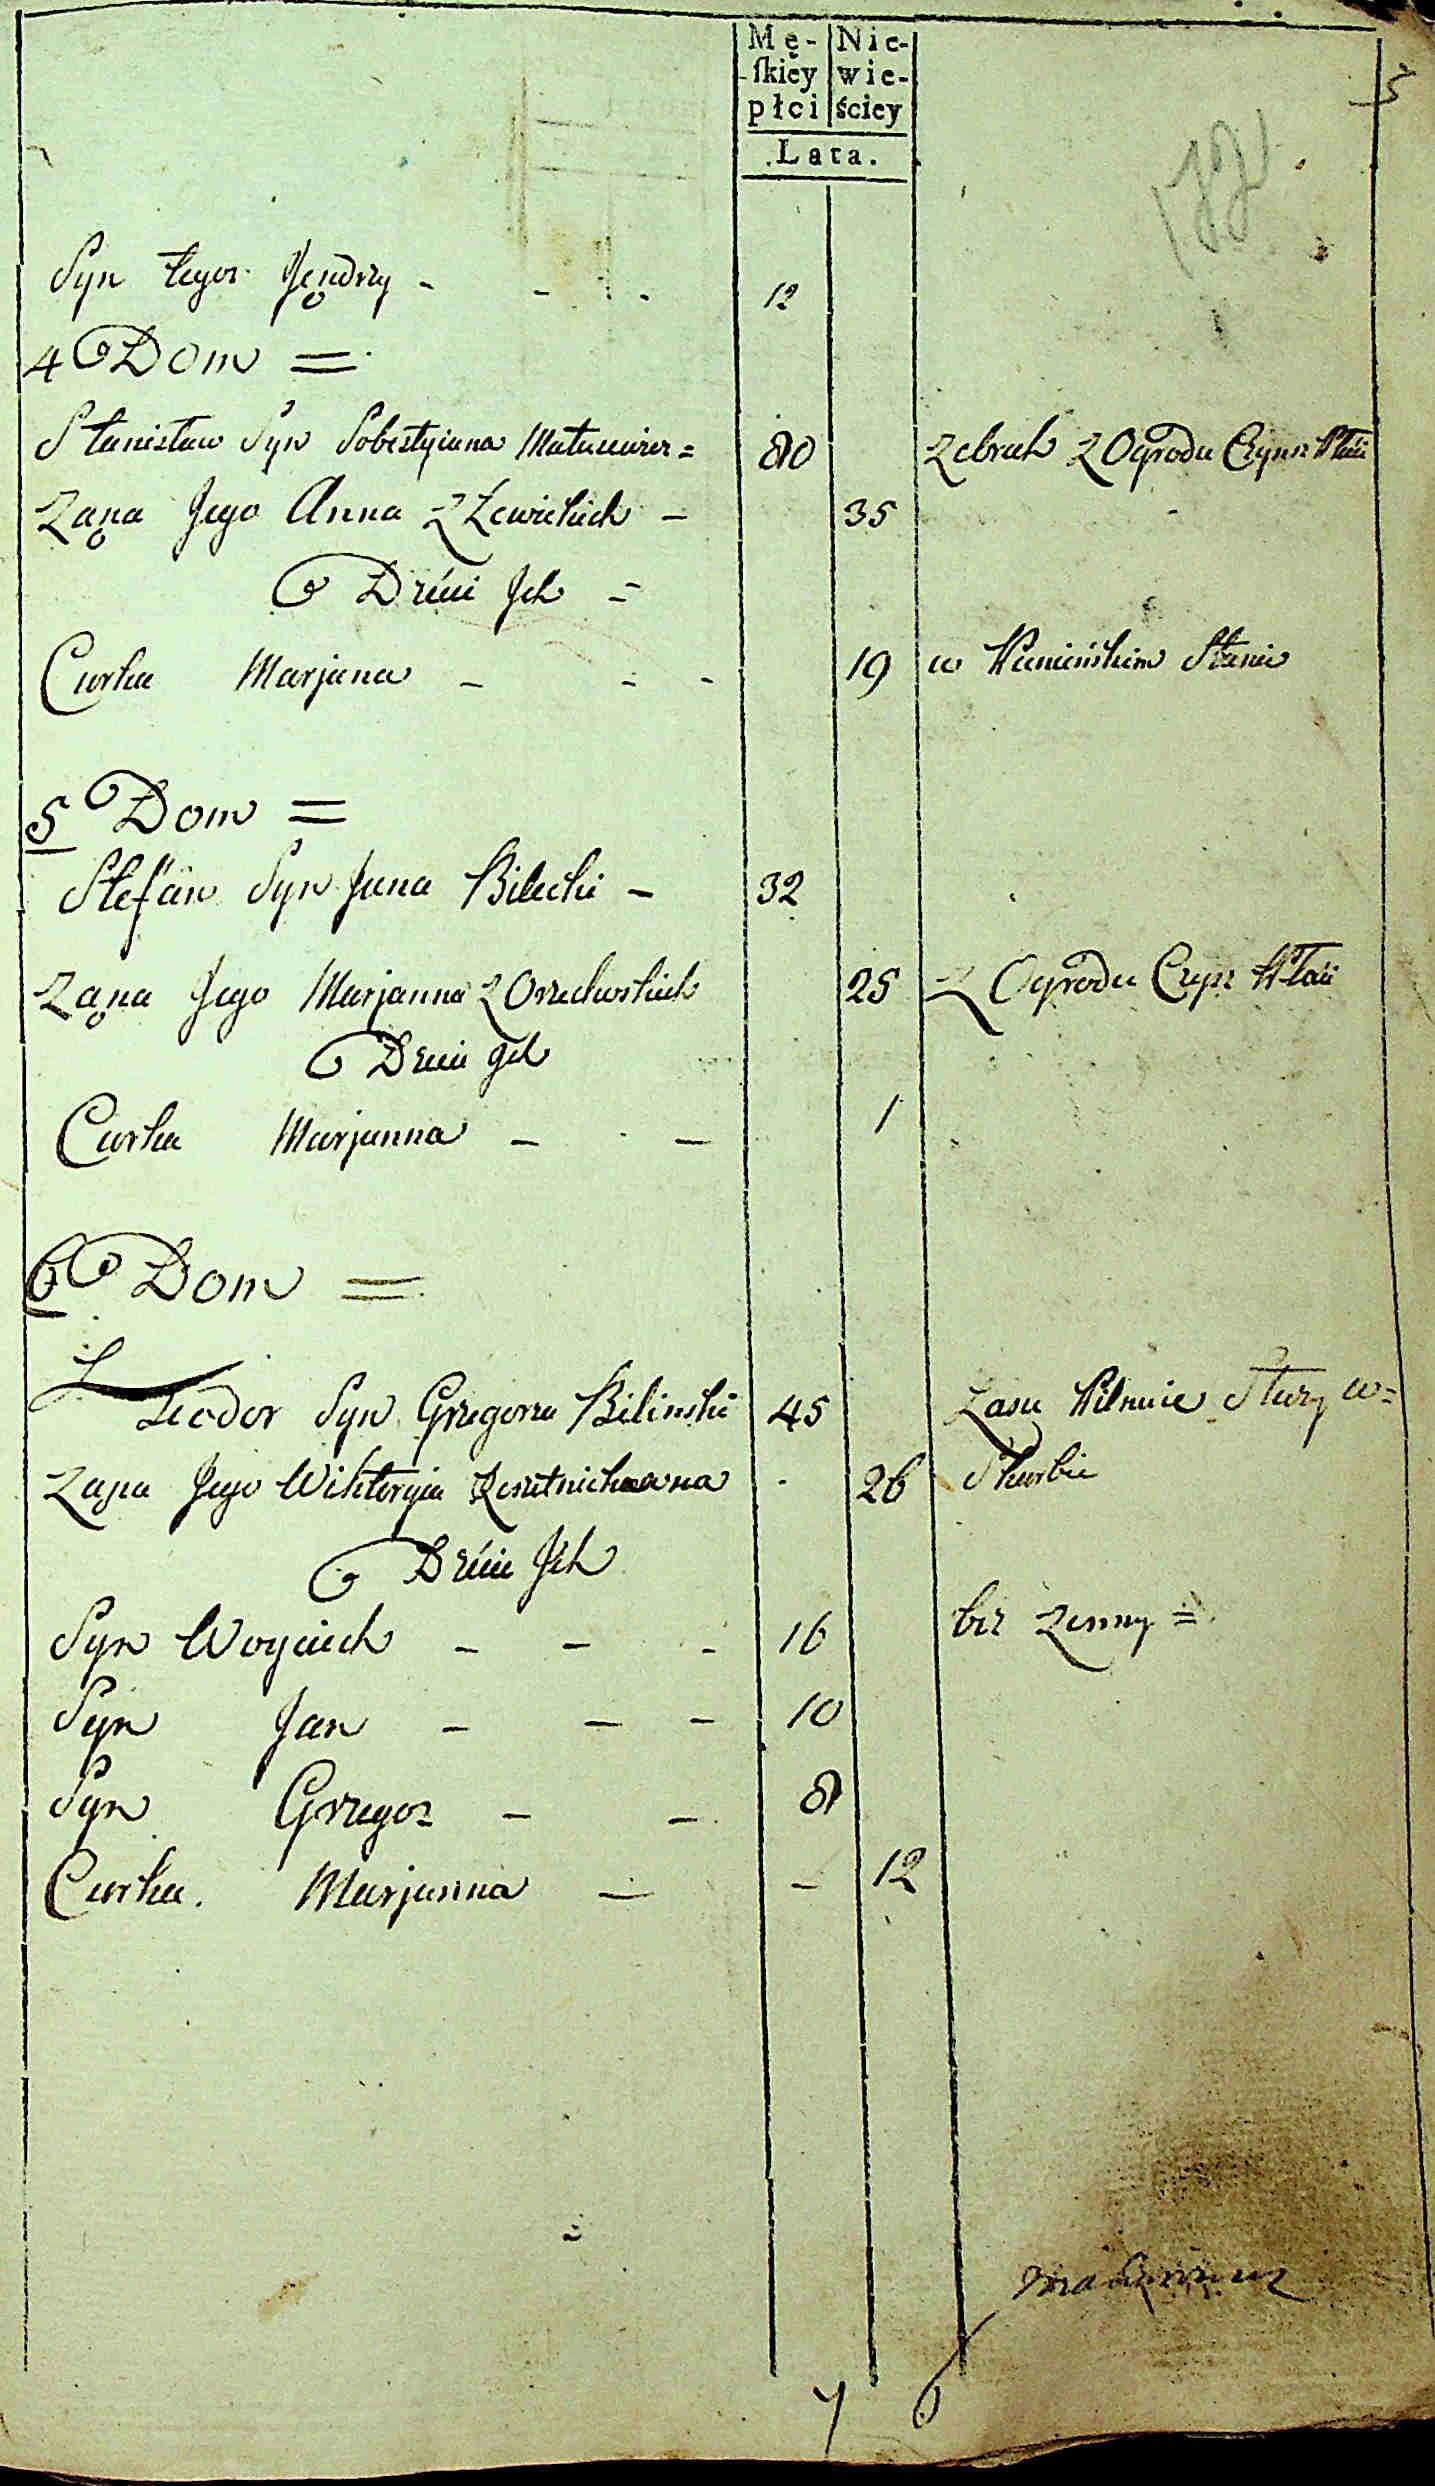 Mę-
skiey
płci
Nie-
wie-
ściey
Lata.
3
Syn tegoz Jędrzy - - - 12
4 Dom =
Stanisław Syn Sobestyiana Matuewicz = 80 Zebrak z Ogrodu Czynsz Płaci
Ząna Jego Anna z Lewickich - 35
Dzieci Jch =
Curka Marjana - - - 19 w Panieńskim Stanie
5 Dom =
Stefan Syn Jana Bilecki - 32
Ząna Jego Marjanna z Orzechoskich 25 z Ogrodu Czysz Płaci
Dzieci Jch
Curka Marjanna - - 1
6 Dom =
Teodor Syn Grzegorza Bilinski 45 Lasu Pilnuie Służy w=
Ząna Jego Wiktoryia 26 Skarbie
Dzieci Jch
Syn Woyciech - - - 16 bez Zenny =
Syn Jan - - - 10
Syn Grzegoz - - 8
Curka Marjanna - - 12
7 6